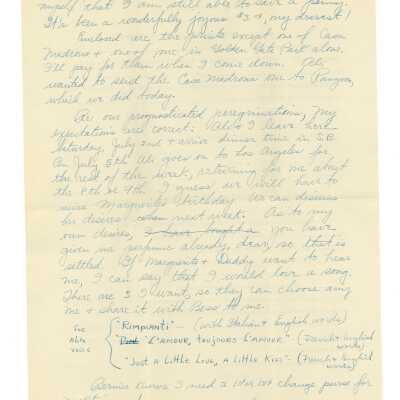 myself that I am still able to save a penny.
It's been a wonderfully joyous, my dearest!
Enclosed are the prints except one of Casa
Madrona & one of me in Golden Gate Park alone.
I'll pay for them when I come down. Alis
wanted to send the Casa Madrona one to
which we did today.
As our prognosticated peregrinations, my
expectations are correct: Alis & I leave here
Saturday, July 2nd & arrive dinner time in S.B.
On July 5th Alis goes on to Los Angeles for
the rest of the week, returning for me about
the 8th or 9th. I guess we will have to
miss Marguerite's birthday. We can discuss
her desires when next week. As to my
own desires, I have bought a you have
given me perfume already, dear, so that is
settled. If Marguerite & Daddy want to hear
me, I can say that I would love a song.
There are 3 I want, so they can choose any
me & share it with Bess to me.
For
Alto
voice
"Rimpianti" — (with Italian & English words)
"L'amour, toujours l'amour" — (French & English
words)
"Just a Little Love, A Little Kiss" — (French & English
words)
Bernice knows I need a change purse for